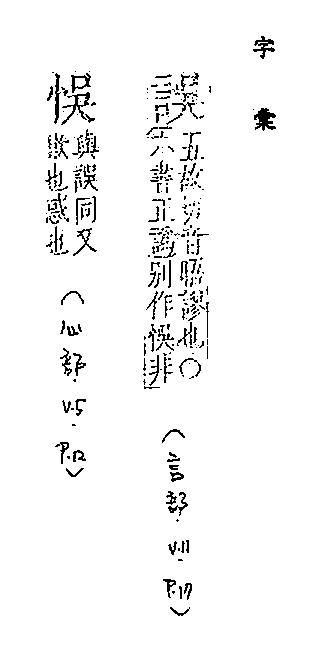 字彙
誤 五故切音唔謬也○
六書正譌別作悞非
(言部. V.11. P.17)
悞 與誤同又
欺也惑也
(心部. V.5. P.12)